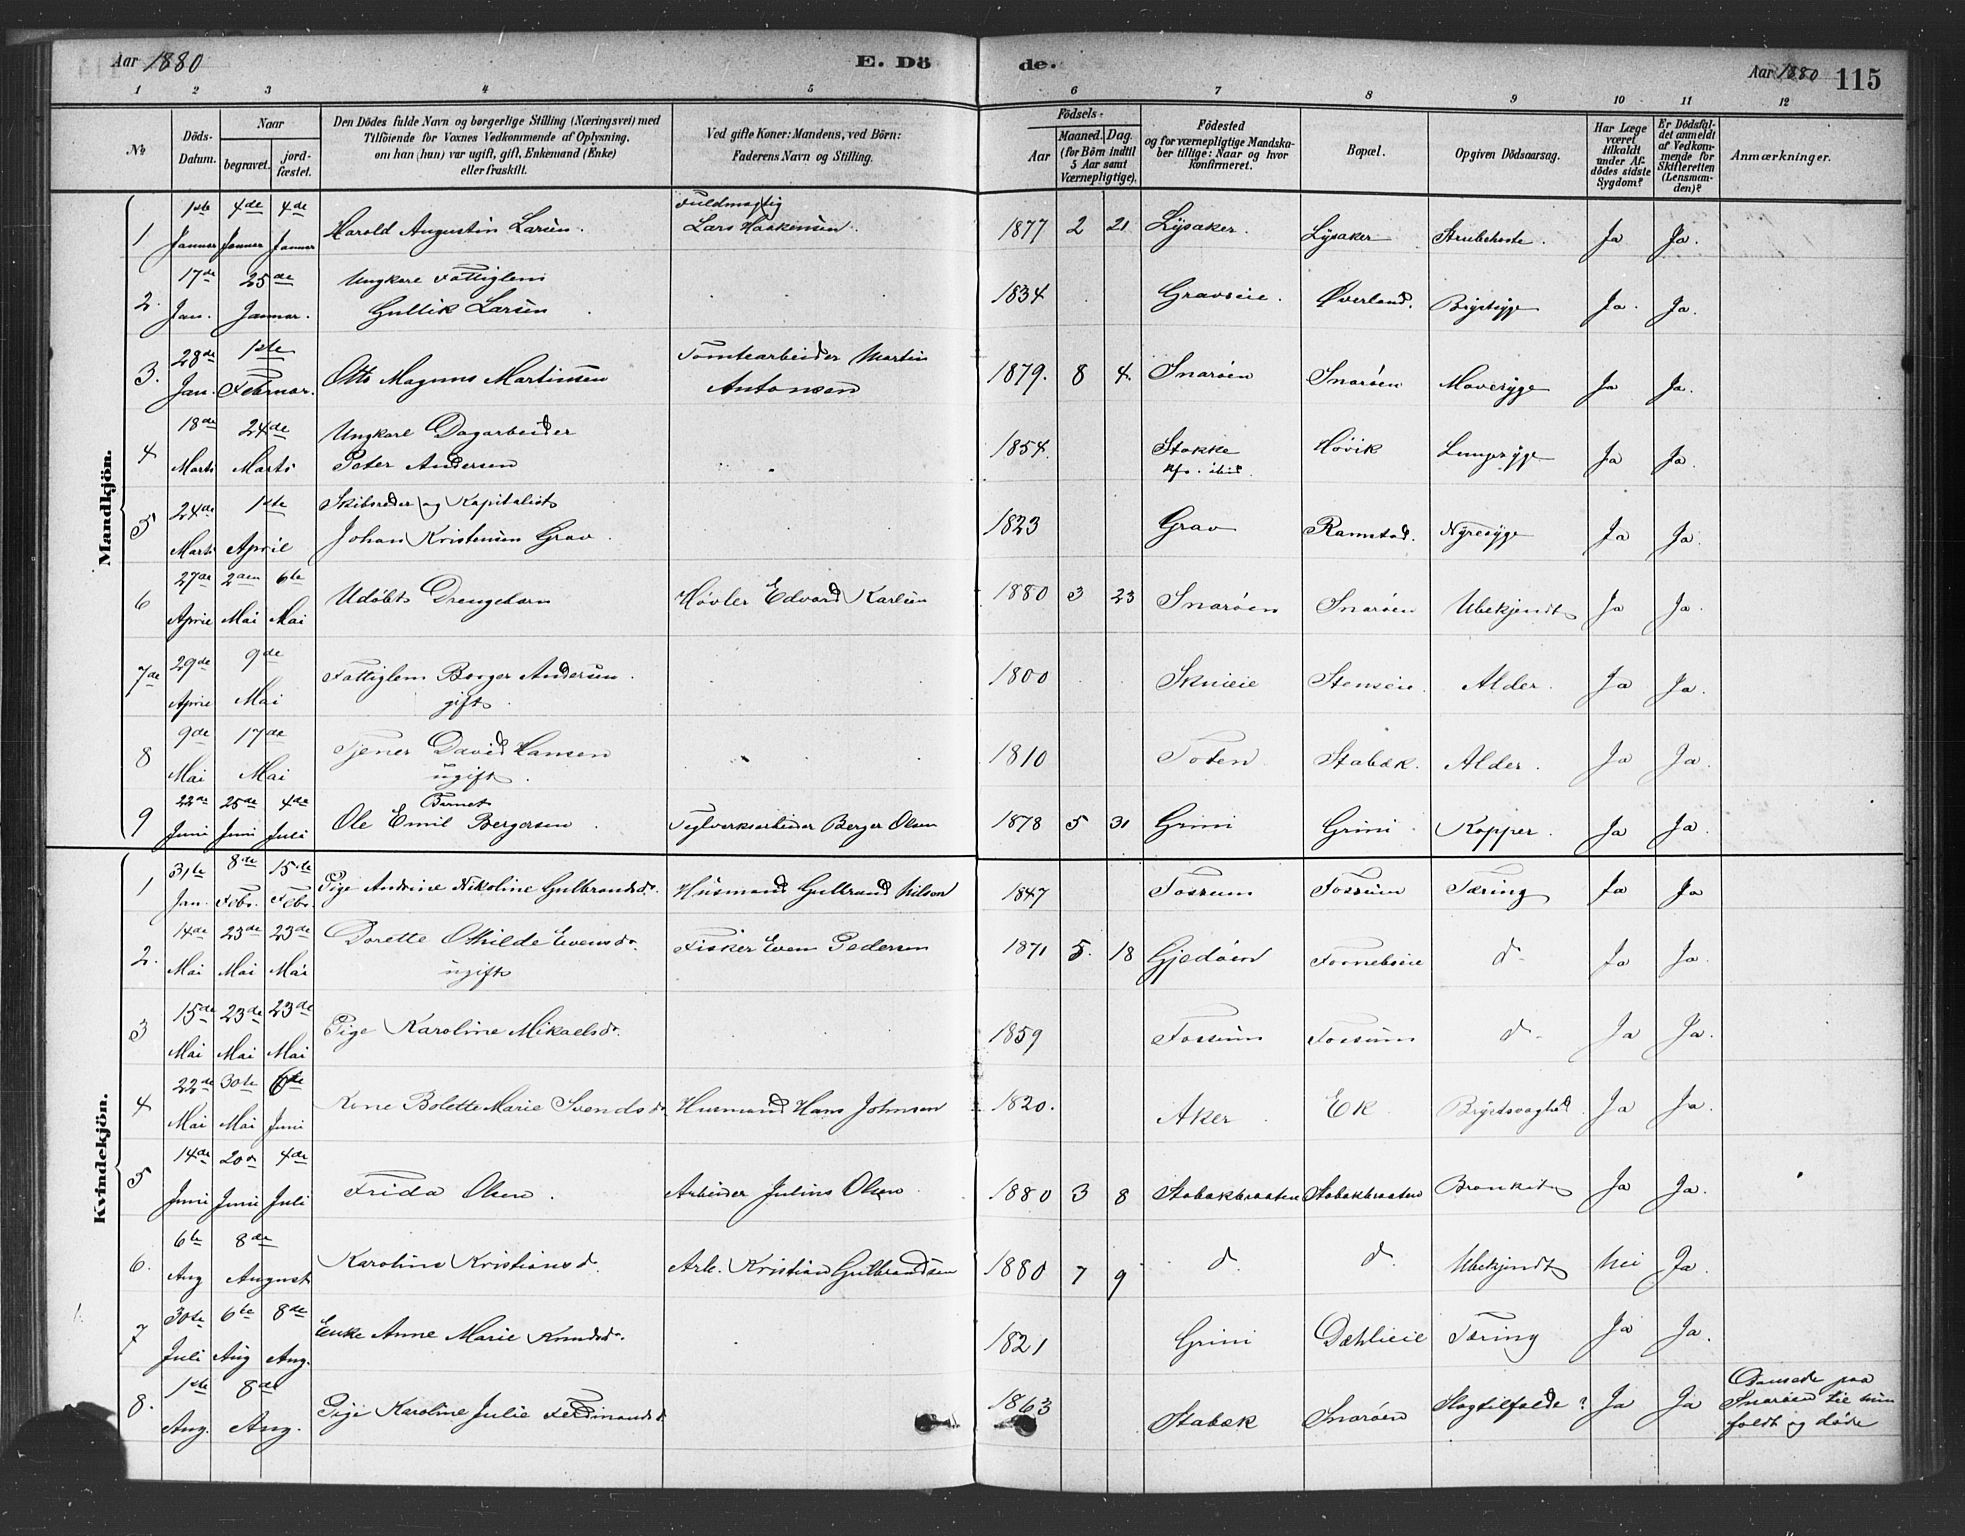 Aar 1880 E. Dö de. Aar 1880 115
1 2 3 4 5 6 7 8 9 10 11 12
No
Döds-Datum.
Naar
begravet. jord-fæstet.
Den Dödes fulde Navn og borgerlige Stilling (Næringsvei) med
Tilföiende for Voxnes Vedkommende af Oplysning,
om han (hun) var ugift, gift, Enkemand (Enke)
eller fraskilt.
Ved gifte Koner: Mandens, ved Börn:
Faderens Navn og Stilling.
Födsels-
Aar Maaned. Dag.
(for Börn indtil
5 Aar samt
Værnepligtige).
Födested
og for værnepligtige Mandska-
ber tillige: Naar og hvor
konfirmeret.
Bopæl.
Opgiven Dödsaarsag.
Har Læge
været
tilkaldt
under Af-
dödes sidste
Sygdom?
Er Dödsfal-
det anmeldt
af Vedkom-
mende for
Skifteretten
(Lensman-
den)?
Anmærkninger.
Mandkjön.
1 1ste Januar 4de Januar 4de Januar Harold Augustin Larsen. Fuldmægtig Lars Haakensen. 1877 2 21 Lysaker. Lysaker Strubehoste. Ja Ja.
2. 17de Jan. 25de Januar. Ungkarl Fattiglem Gullik Larsen 1834 Gravseie. Øverland. Brystsyge Ja. Ja.
3. 28de Jan. 1ste Februar. Otto Magnus Martinsen Tomtearbeider Martin Antonsen 1879. 8 4. Snarøen Snarøen Mavesyge Ja Ja.
4 18de Marts 24de Marts Ungkarl Dagarbeider Peter Andersen 1854. Stokke kfr. ibid. Høvik Lungesyge Ja Ja.
5 24de Marts 1ste April Skibsreder og Kapitalist Johan Kristensen Grav. 1823 Grav Ramstad. Nyresyge Ja Ja.
6 27de April 2den Mai 6te Mai Udøbt Drengebarn Høvler Edvard Karlsen 1880 3 23 Snarøen Snarøen Ubekjendt Ja Ja.
7de 29de April 9de Mai Fattiglem Borger Andersen. gift. 1800 Skuieie Stenseie. Alder. Ja Ja.
8 9de Mai 17de Mai Tjener David Hansen ugift. 1810 Toten Stabæk. Alder. Ja Ja.
9 22de Juni 25de Juni 4de Juli Barnet Ole Emil Bergersen Teglverksarbeider Berger Olsen 1878 5 31 Grini Grini Kopper. Ja Ja.
Kvindekjön.
1 31te Jan. 8de Febr. 15de Febr. Pige Andrine Nikoline Gulbrandsd. Husmand Gulbrand Nilsen 1847 Fossum Fossum Tæring Ja Ja
2. 14de Mai 23de Mai 23de Mai Dorette Othilde Evensd. ugift Fisker Even Pedersen 1871 5. 18 Gjedøen Fornebøeie d. Ja Ja.
3 15de Mai 23de Mai 23de Mai Pige Karoline Mikaelsd. 1859 Fossum Fossum d. Ja Ja.
4 22de Mai 30te Mai 6te Juni Kone Bolette Marie Svendsd. Husmand Hans Johnsen 1820. Aker Ek Brystsvaghed Ja Ja.
5 14de Juni 20de Juni 4de Juli Frida Olsen. Arbeider Julius Olsen 1880 3 8 Stabækbraaten Stabækbraaten Bronkit Ja Ja.
6. 6te Aug 8de August Karoline Kristiansd. Arb. Kristian Gulbrandsen 1880 7 9 d. d. Ubekjendt Nei Ja.
7 30te Juli 6te Aug 8de Aug. Enke Anne Marie Knudsd. 1821 Grini Dæhlieie Tæring Ja Ja.
8. 1ste Aug. 8de Aug. Pige Karoline Julie Ferdinandsd. 1863 Stabæk Snarøen Slagtilfælde? Ja Ja Dansede paa Snarøen til hun faldt og døde